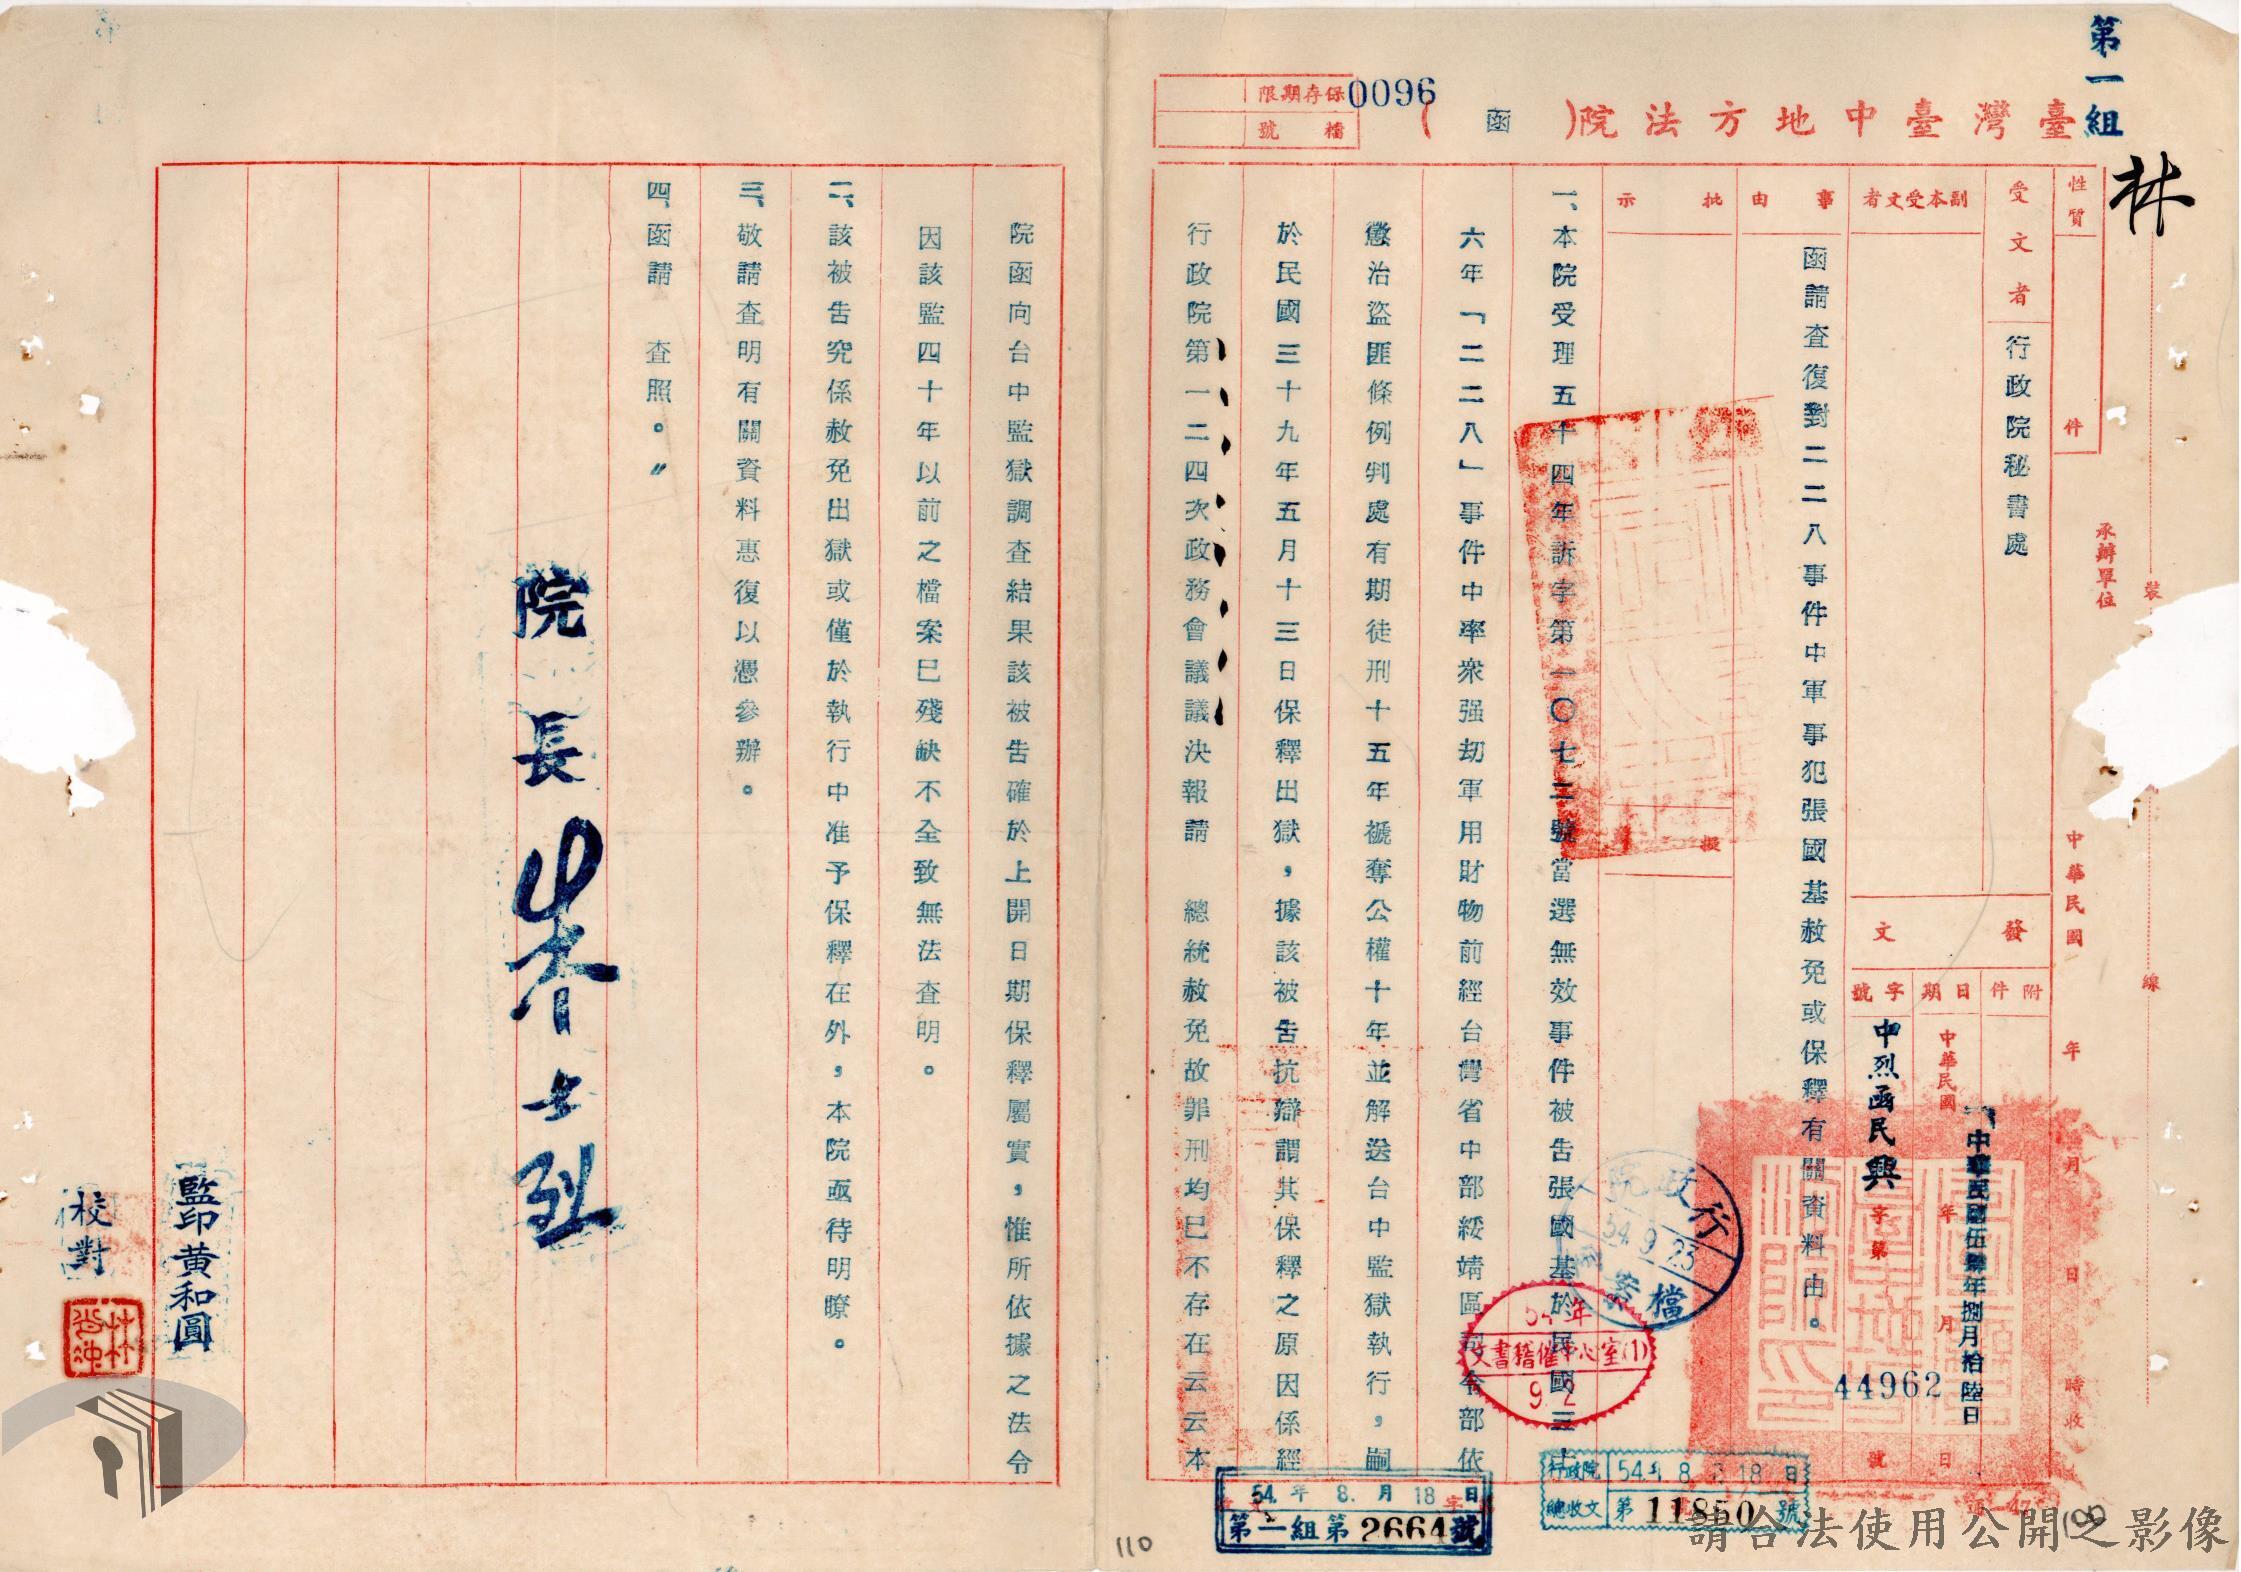 第一組
林
臺灣臺中地方法院(函)
0096
保存期限
檔號
性質
件
承辦單位
裝
線
中華民國 年 月 日 時收
受文者
行政院秘書處
副本受文者
發文
附件
日期
中華民國 年 月 日
中華民國伍肆年捌月拾陸日
字號
中烈函民興字第44962號
事由
函請查復對二二八事件中軍事犯張國基赦免或保釋有關資料由。
批示
擬
一、本院受理五十四年訴字第一〇七二號當選無效事件被告張國基於民國三十
六年「二二八」事件中率衆强刧軍用財物前經台灣省中部綏靖區司令部依
懲治盜匪條例判處有期徒刑十五年褫奪公權十年並解送台中監獄執行,嗣
於民國三十九年五月十三日保釋出獄,據該被告抗辯謂其保釋之原因係經
行政院第一二四次政務會議議決報請 總統赦免故罪刑均已不存在云云本
院函向台中監獄調査結果該被告確於上開日期保釋屬實,惟所依據之法令
因該監四十年以前之檔案已殘缺不全致無法査明。
二、該被告究係赦免出獄或僅於執行中准予保釋在外,本院亟待明瞭。
三、敬請査明有關資料惠復以憑參辦。
四、函請 査照。〃
院長
監印黃和圓
校對
行政院
54.9.23
檔案
54年
文書稽催中心室(1)
9.2
54年8月18日
第一組第2664號
行政院
總收文
54年8月18日
第11850號
110
100
請合法使用公開之影像